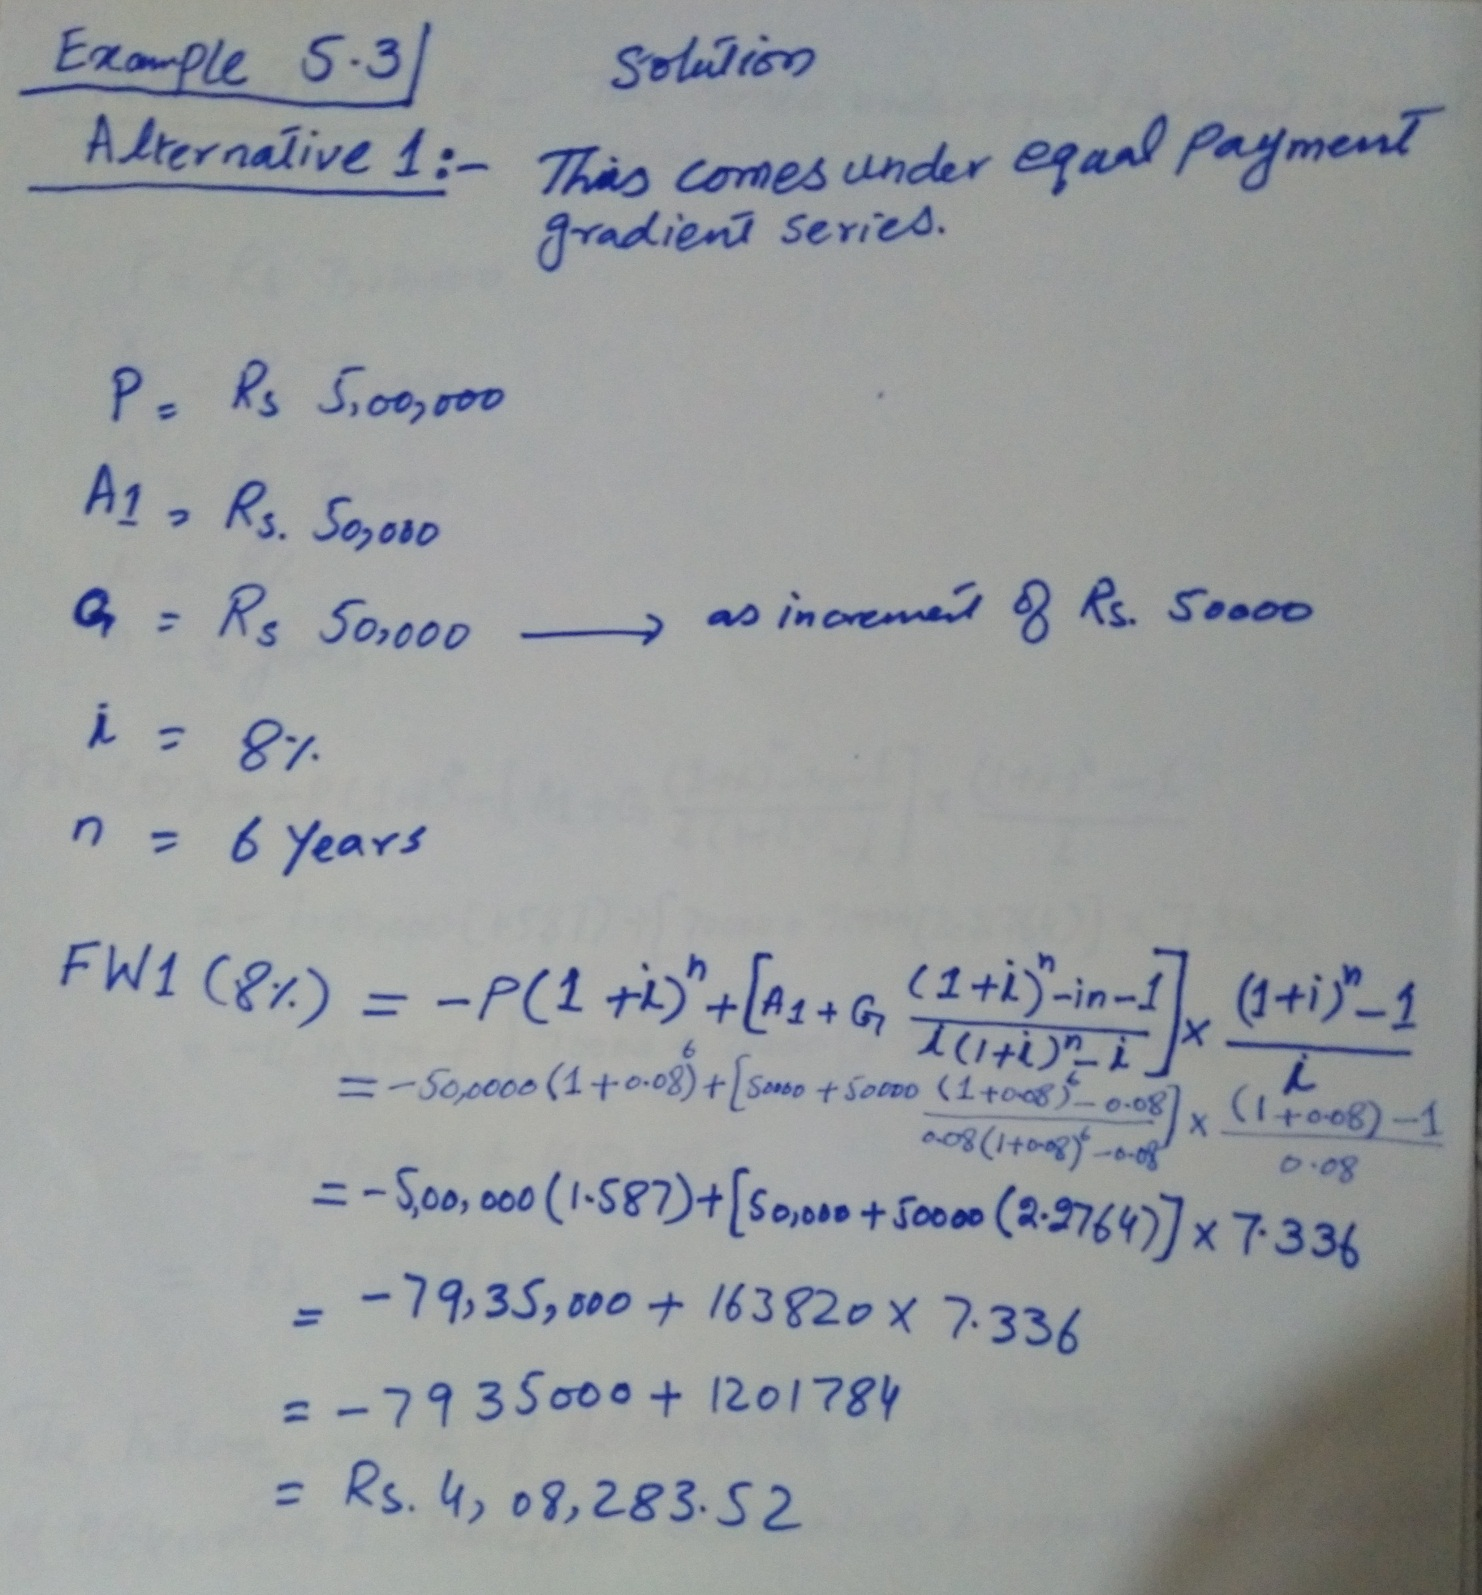 Example 5.3 Solution
Alternative 1:- This comes under equal payment
gradient series.
P = Rs 5,00,000
A1 = Rs. 50,000
G = Rs 50,000 → as increment of Rs. 50000
i = 8%
n = 6 Years
FW1 (8%) = -P(1+i)^n + [A1 + G ((1+i)^n - in - 1)/(i(1+i)^n - i)] × ((1+i)^n - 1)/i
= -50,0000 (1+0.08)^6 + [50000 + 50000 ((1+0.08)^6 - 0.08)/(0.08(1+0.08)^6 - 0.08)] × ((1+0.08) - 1)/0.08
= -5,00,000 (1.587) + [50,000 + 50000 (2.2764)] × 7.336
= -79,35,000 + 163820 × 7.336
= -7935000 + 1201784
= Rs. 4,08,283.52